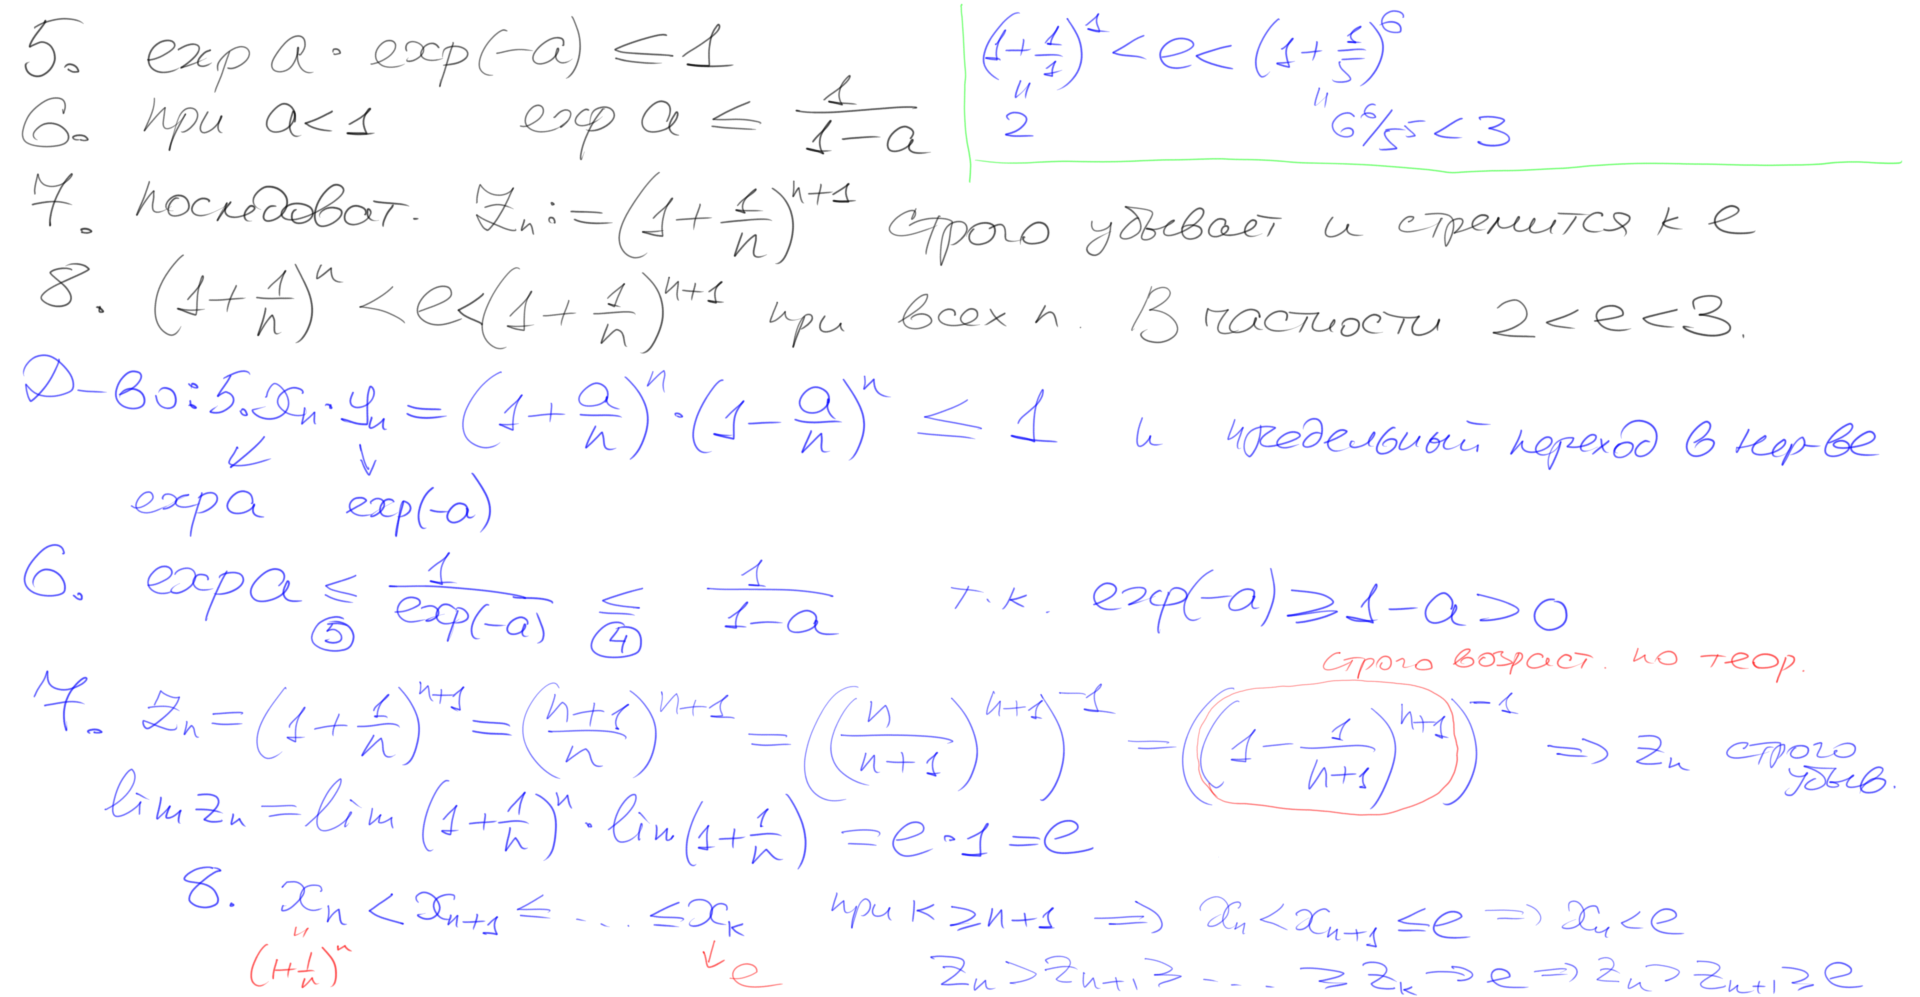 5. exp a · exp(-a) ≤ 1
6. при a < 1 exp a ≤ 1/(1-a)
(1+1/1)^1 < e < (1+1/5)^6
" "
2 6^6/5^5 < 3
7. последоват. Zn := (1+1/n)^(n+1) строго убывает и стремится к e
8. (1+1/n)^n < e < (1+1/n)^(n+1) при всех n. В частности 2 < e < 3.
Д-во: 5. xn · yn = (1+a/n)^n · (1-a/n)^n ≤ 1 и предельный переход в нер-ве
↙ ↓
exp a exp(-a)
6. exp a ≤ 1/exp(-a) ≤ 1/(1-a) т.к. exp(-a) ≥ 1-a > 0
⑤ ④
строго возраст. по теор.
7. Zn = (1+1/n)^(n+1) = ((n+1)/n)^(n+1) = ((n/(n+1))^(n+1))^-1 = ((1-1/(n+1))^(n+1))^-1 => Zn строго убыв.
lim Zn = lim (1+1/n)^n · lim (1+1/n) = e · 1 = e
8. xn < xn+1 ≤ ... ≤ xk при k ≥ n+1 => xn < xn+1 ≤ e => xn < e
" ↓
(1+1/n)^n e
Zn > Zn+1 ≥ ... ≥ Zk → e => Zn > Zn+1 ≥ e